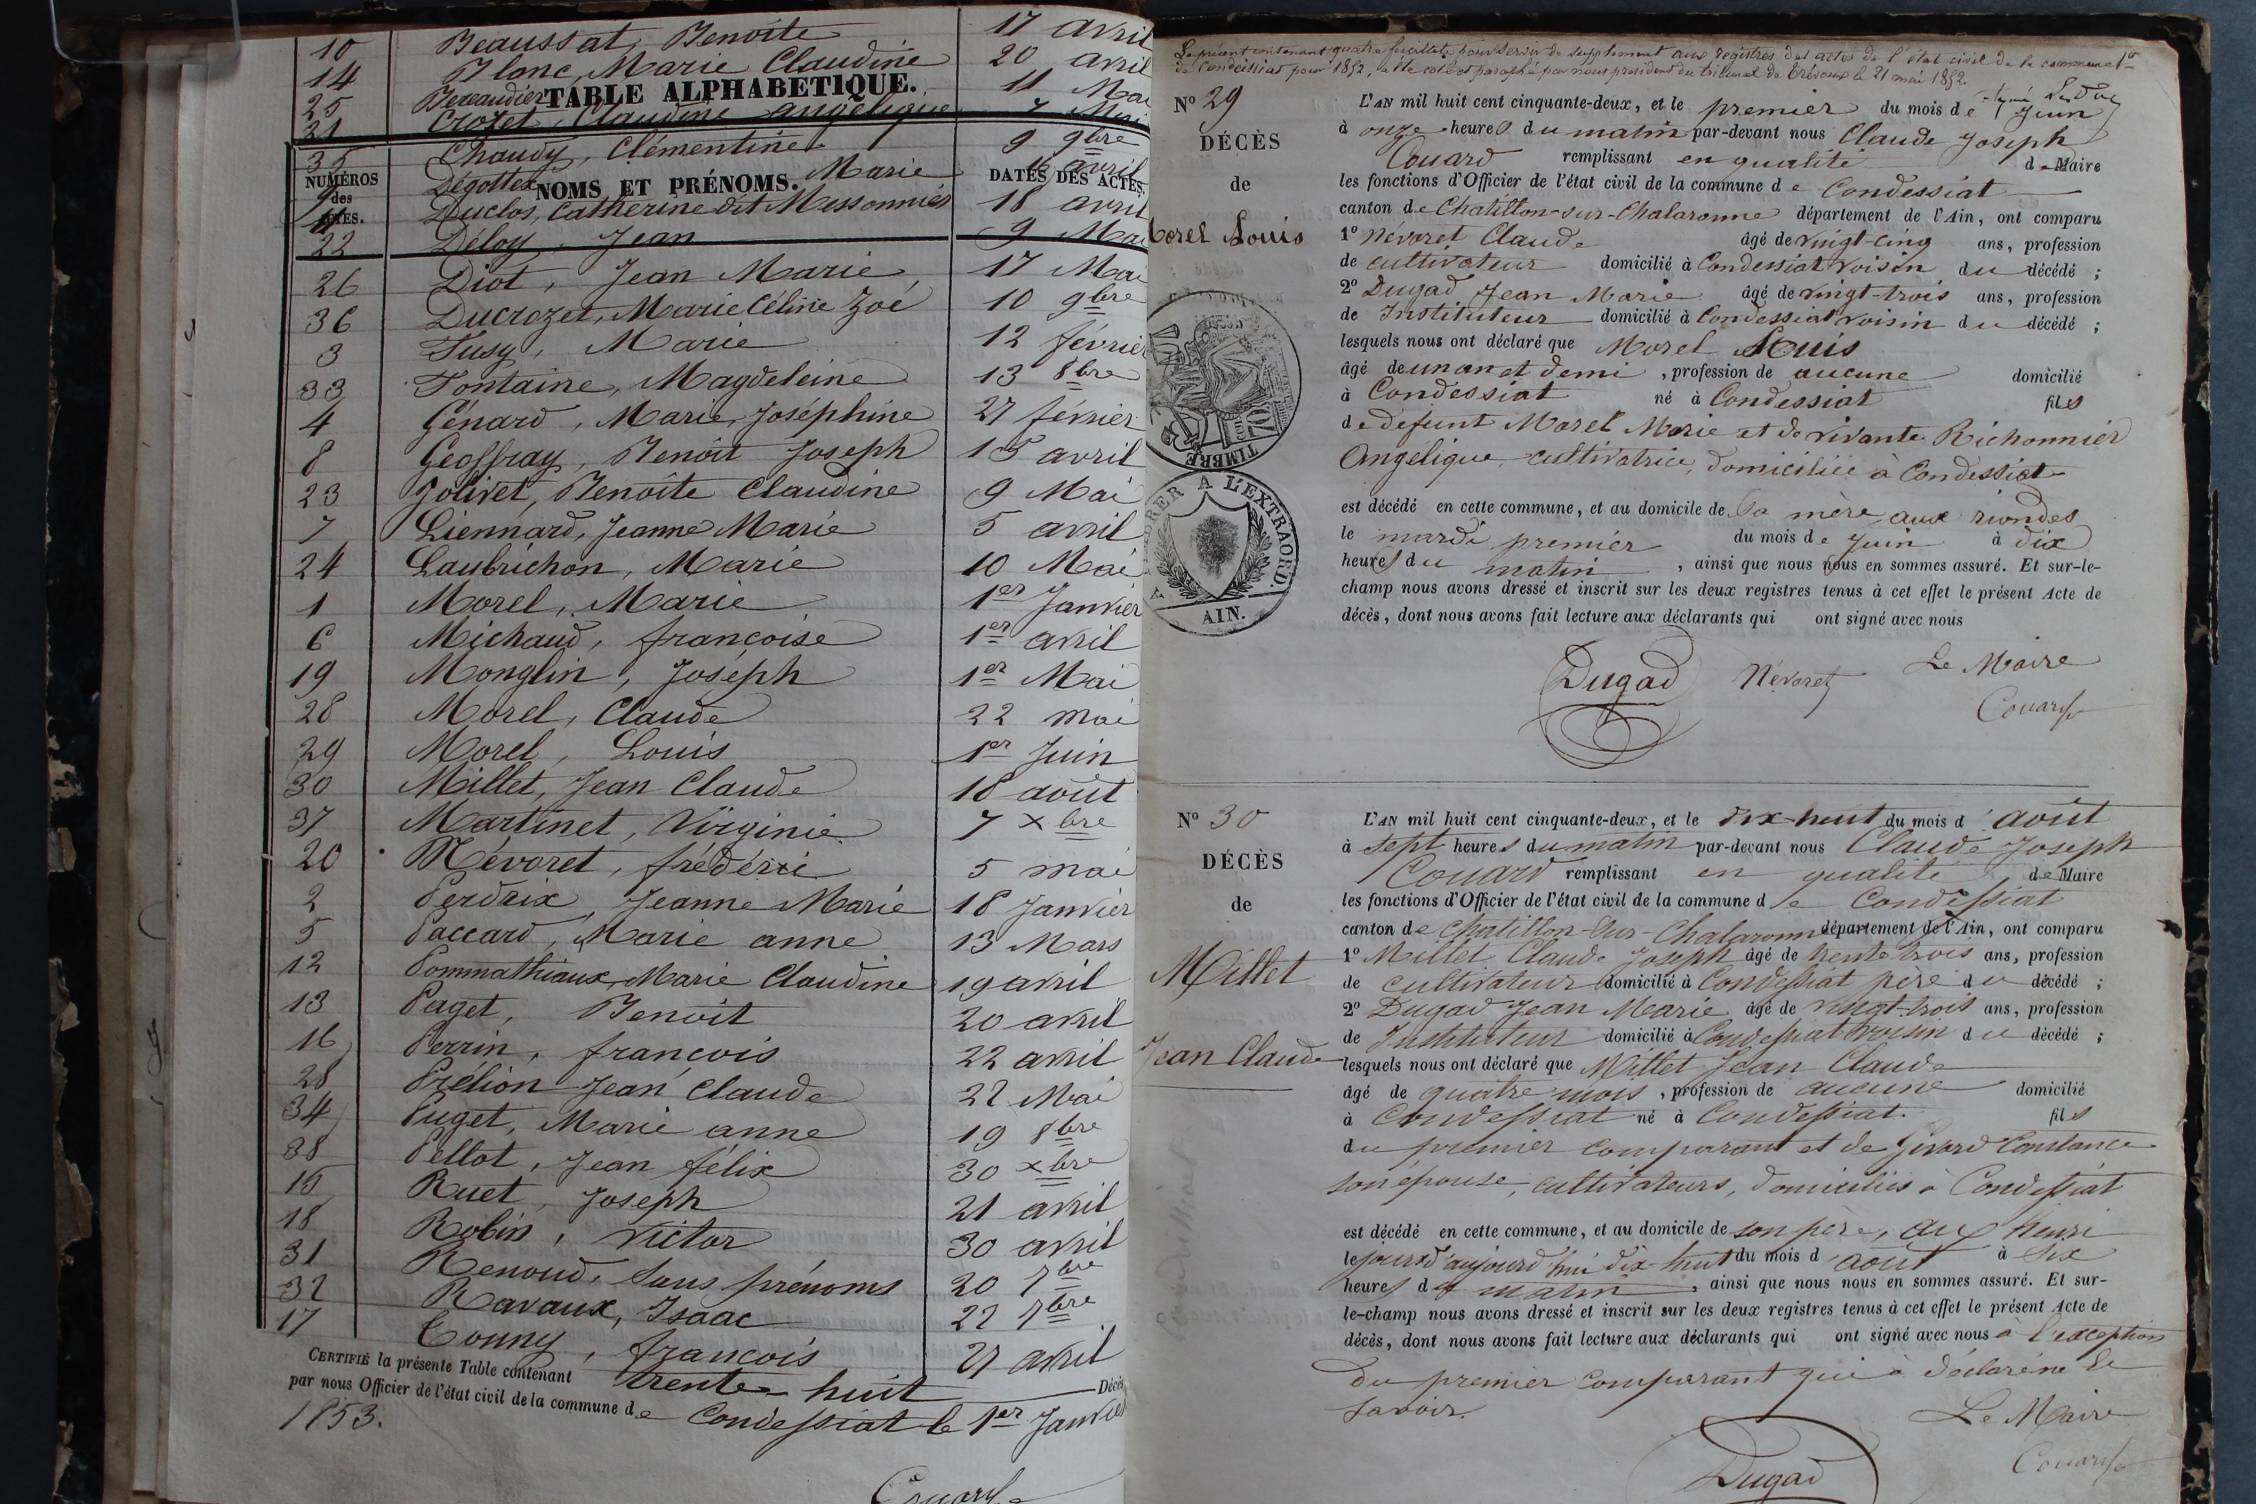 10 Beaussat, Benoîte 17 avril
14 Blanc, Marie Claudine 20 avril
TABLE ALPHABETIQUE.
25 Bereaudier 11 Mai
21 Crozet, Claudine angélique 7 Mai
35 Chaudy, Clémentine 9 9bre
Dégottex Marie 16 avril
NUMÉROS des ACTES. NOMS ET PRÉNOMS. DATES DES ACTES.
11 Duclos, Catherine dit Messonnier 18 avril
22 Déloy, Jean 9 Mai
26 Diot, Jean Marie 17 Mai
36 Ducrozet, Marie Céline Zoé 10 9bre
3 Fusy, Marie 12 février
33 Fontaine, Magdeleine 13 8bre
4 Génard, Marie Joséphine 27 février
8 Geoffray, Benoit Joseph 15 avril
23 Jolivet, Benoîte Claudine 9 Mai
7 Liennard, Jeanne Marie 5 avril
24 Laubrichon, Marie 10 Mai
1 Morel, Marie 1er Janvier
6 Michaud, françoise 1er avril
19 Monglin, Joseph 1er Mai
28 Morel, Claude 22 mai
29 Morel, Louis 1er Juin
30 Millet, Jean Claude 18 août
37 Martinet, Virginie 7 xbre
20 Névoret, frédéric 5 mai
2 Perdrix, Jeanne Marie 18 Janvier
5 Paccard, Marie anne 13 Mars
12 Pommathiaux, Marie Claudine 19 avril
13 Paget, Benoit 20 avril
16 Perrin, françois 22 avril
28 Prélion Jean Claude 22 Mai
34 Puget, Marie anne 19 8bre
38 Pellot, Jean félix 30 xbre
15 Ruet, Joseph 21 avril
18 Robin, Victor 30 avril
31 Renoud, sans prénoms 20 7bre
32 Ravaux, Isaac 22 7bre
17 Conny, françois 27 avril
CERTIFIÉ la présente Table contenant trente-huit Décès
par nous Officier de l'état civil de la commune de Condessiat le 1er Janvier
1853.
Couard
Le présent contenant quatre feuillets pour servir de supplément aux registres des actes de l'état civil de la commune
de Condeissiat pour 1852, a été coté et paraphé par nous président du tribunal de Trévoux le 21 mai 1852
No 29
DÉCÈS
de
Morel Louis
L'AN mil huit cent cinquante-deux, et le premier du mois de Juin
à onze heures du matin par-devant nous Claude Joseph
Couard remplissant en qualité de Maire
les fonctions d'Officier de l'état civil de la commune de Condessiat
canton de Chatillon-sur-Chalaronne département de l'Ain, ont comparu
1o Névoret Claude âgé de vingt-cinq ans, profession
de cultivateur domicilié à Condessiat voisin du décédé ;
2o Dugad Jean Marie âgé de vingt-trois ans, profession
de Instituteur domicilié à Condessiat voisin du décédé ;
lesquels nous ont déclaré que Morel Louis
âgé de un an et demi, profession de aucune domicilié
à Condessiat né à Condessiat fils
de defunt Morel Marie et de vivante Richonnier
Angélique, cultivatrice, domiciliée à Condessiat
est décédé en cette commune, et au domicile de sa mère aux riondes
le mardi premier du mois de Juin à dix
heures du matin, ainsi que nous nous en sommes assuré. Et sur-le-
champ nous avons dressé et inscrit sur les deux registres tenus à cet effet le présent Acte de
décès, dont nous avons fait lecture aux déclarants qui ont signé avec nous
Dugad Névoret Le Maire
Couard
TIMBRE
70
TIMBRER A L'EXTRAORD.
AIN.
No 30
DÉCÈS
de
Millet
Jean Claude
L'AN mil huit cent cinquante-deux, et le dix-huit du mois d'août
à sept heures du matin par-devant nous Claude Joseph
Couard remplissant en qualité de Maire
les fonctions d'Officier de l'état civil de la commune de Condessiat
canton de Chatillon-sur-Chalaronne département de l'Ain, ont comparu
1o Millet Claude Joseph âgé de trente trois ans, profession
de cultivateur domicilié à Condessiat père du décédé ;
2o Dugad Jean Marie âgé de vingt-trois ans, profession
de Instituteur domicilié à Condessiat voisin du décédé ;
lesquels nous ont déclaré que Millet Jean Claude
âgé de quatre mois, profession de aucune domicilié
à Condessiat né à Condessiat. fils
du premier comparant et de Girard Constance
son épouse, cultivateurs, domiciliés à Condessiat
est décédé en cette commune, et au domicile de son père, aux henri
le jourd'aujourd'hui dix-huit du mois d'août à six
heures du matin, ainsi que nous nous en sommes assuré. Et sur-
le-champ nous avons dressé et inscrit sur les deux registres tenus à cet effet le présent Acte de
décès, dont nous avons fait lecture aux déclarants qui ont signé avec nous à l'exception
du premier comparant qui a déclaré ne le
savoir.
Le Maire
Dugad Couard